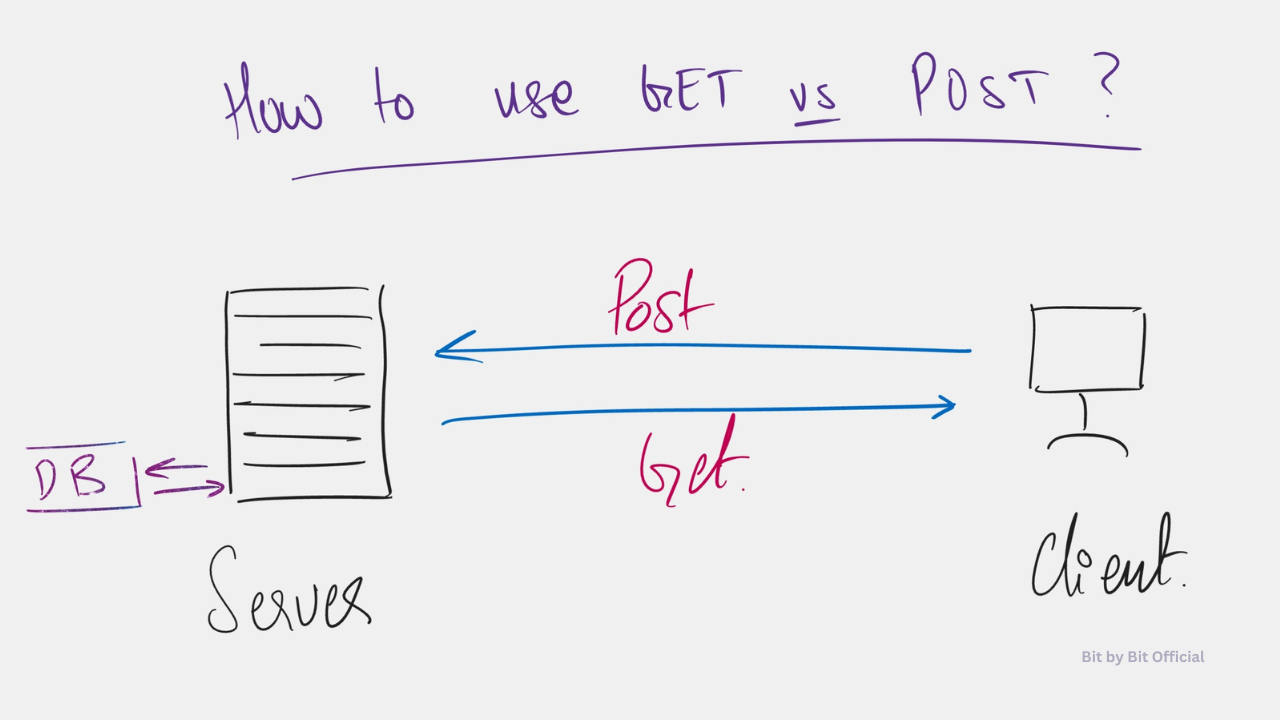 How to use GET vs POST ?
Post
Get.
DB
Server
Client.
Bit by Bit Official